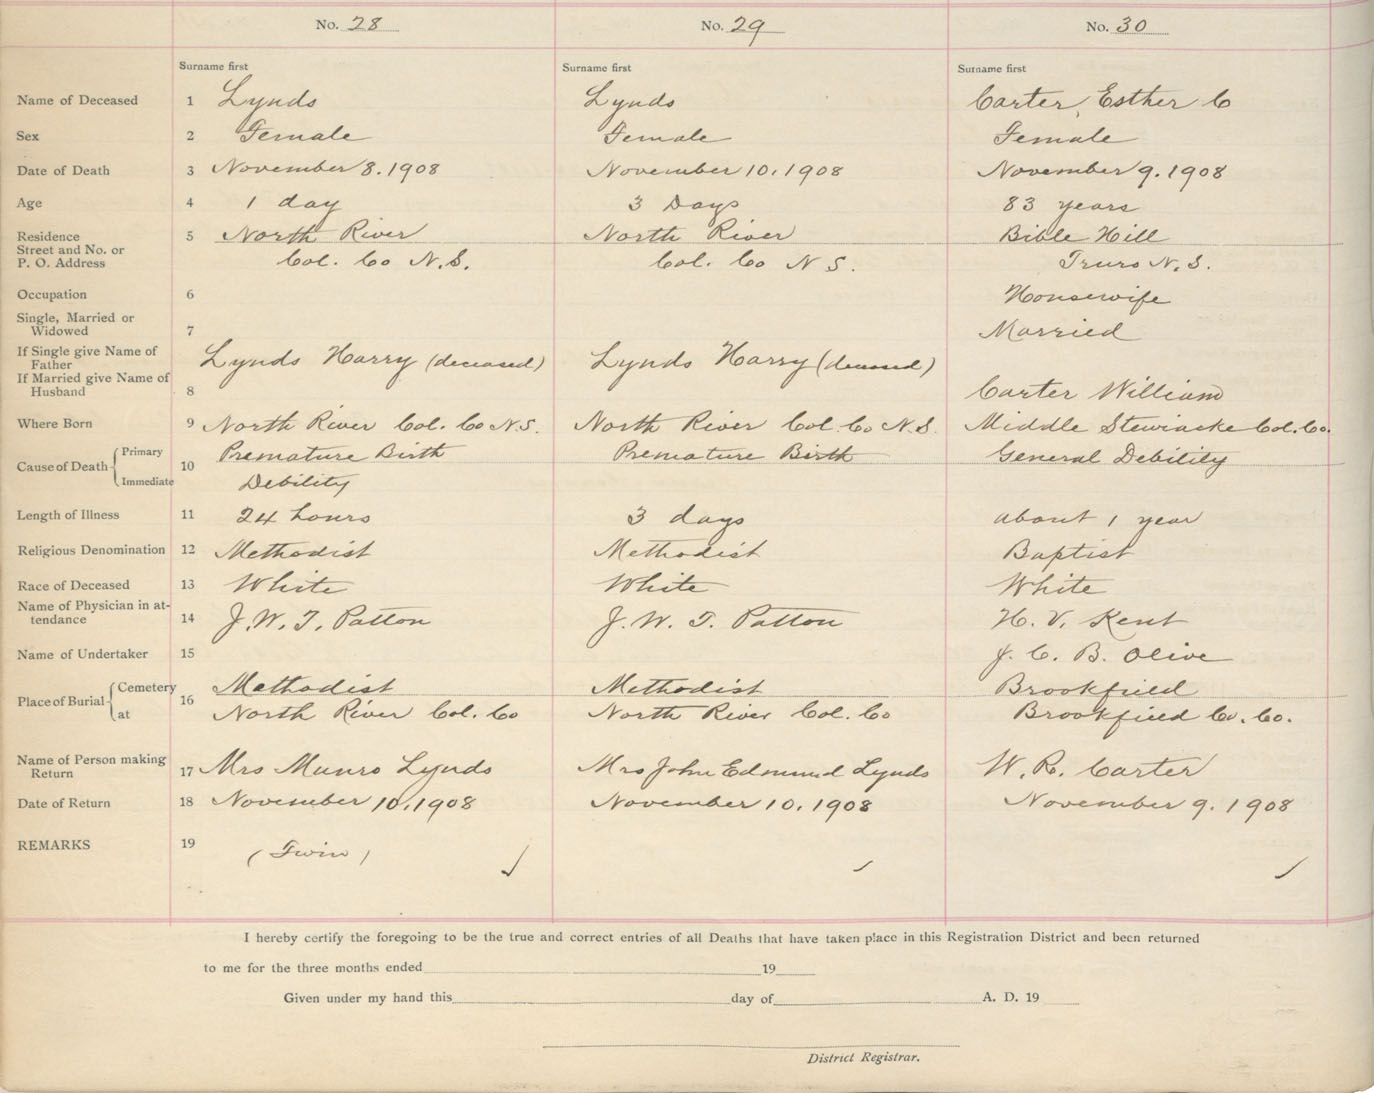 No. 28 No. 29 No. 30
Surname first Surname first Surname first
Name of Deceased 1 Lynds Lynds Carter, Esther C
Sex 2 Female Female Female
Date of Death 3 November 8. 1908 November 10, 1908 November 9. 1908
Age 4 1 day 3 Days 83 years
Residence 5 North River North River Bible Hill
Street and No. or
P. O. Address Col. Co N.S. Col. Co N S. Truro N.S.
Occupation 6 Housewife
Single, Married or
Widowed 7 Married
If Single give Name of
Father Lynds Harry (deceased) Lynds Harry (deceased)
If Married give Name of
Husband 8 Carter William
Where Born 9 North River Col. Co N.S. North River Col. Co N.S. Middle Stewiacke Col. Co.
Cause of Death Primary Premature Birth Premature Birth General Debility
10
Immediate Debility
Length of Illness 11 24 hours 3 days about 1 year
Religious Denomination 12 Methodist Methodist Baptist
Race of Deceased 13 White White White
Name of Physician in at-
tendance 14 J. W. T. Patton J. W. T. Patton H. V. Kent
Name of Undertaker 15 J. C. B. Olive
Place of Burial Cemetery 16 Methodist Methodist Brookfield
at North River Col. Co North River Col. Co Brookfield Co. Co.
Name of Person making
Return 17 Mrs Munro Lynds Mrs John Edmund Lynds W. R. Carter
Date of Return 18 November 10, 1908 November 10, 1908 November 9. 1908
REMARKS 19 (Twin)
I hereby certify the foregoing to be the true and correct entries of all Deaths that have taken place in this Registration District and been returned
to me for the three months ended 19
Given under my hand this day of A. D. 19
District Registrar.